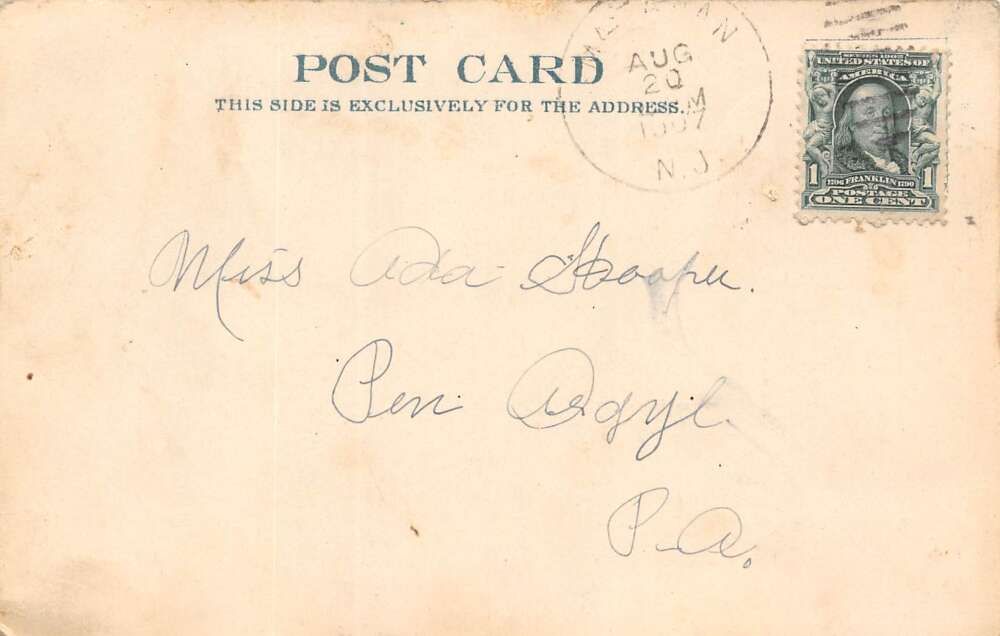 POST CARD
THIS SIDE IS EXCLUSIVELY FOR THE ADDRESS.
AUG
20
M
1907
N.J.
SERIES 1902
UNITED STATES OF
AMERICA
1706 FRANKLIN 1790
POSTAGE
1 ONE CENT 1
Miss Ada Hooper.
Pen Argyl.
P.A.